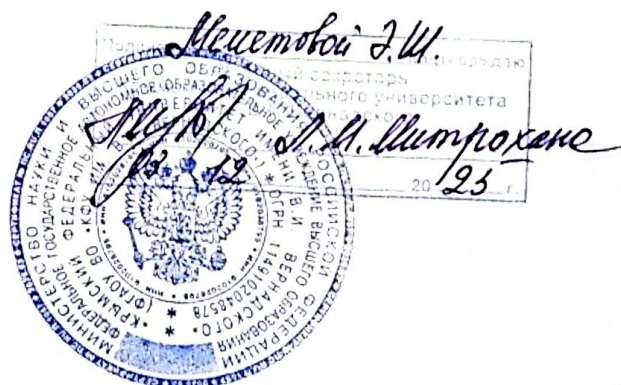 Меметовой Э.Ш.
подтверждаю
секретарь
университета
Л.М. Митрохина
03 12 2025 г.
МИНИСТЕРСТВО НАУКИ И ВЫСШЕГО ОБРАЗОВАНИЯ РОССИЙСКОЙ ФЕДЕРАЦИИ
ФЕДЕРАЛЬНОЕ ГОСУДАРСТВЕННОЕ АВТОНОМНОЕ ОБРАЗОВАТЕЛЬНОЕ УЧРЕЖДЕНИЕ ВЫСШЕГО ОБРАЗОВАНИЯ
«КРЫМСКИЙ ФЕДЕРАЛЬНЫЙ УНИВЕРСИТЕТ ИМЕНИ В.И. ВЕРНАДСКОГО»
(ФГАОУ ВО «КФУ ИМ. В.И. ВЕРНАДСКОГО») * ОГРН 1149102048578 *